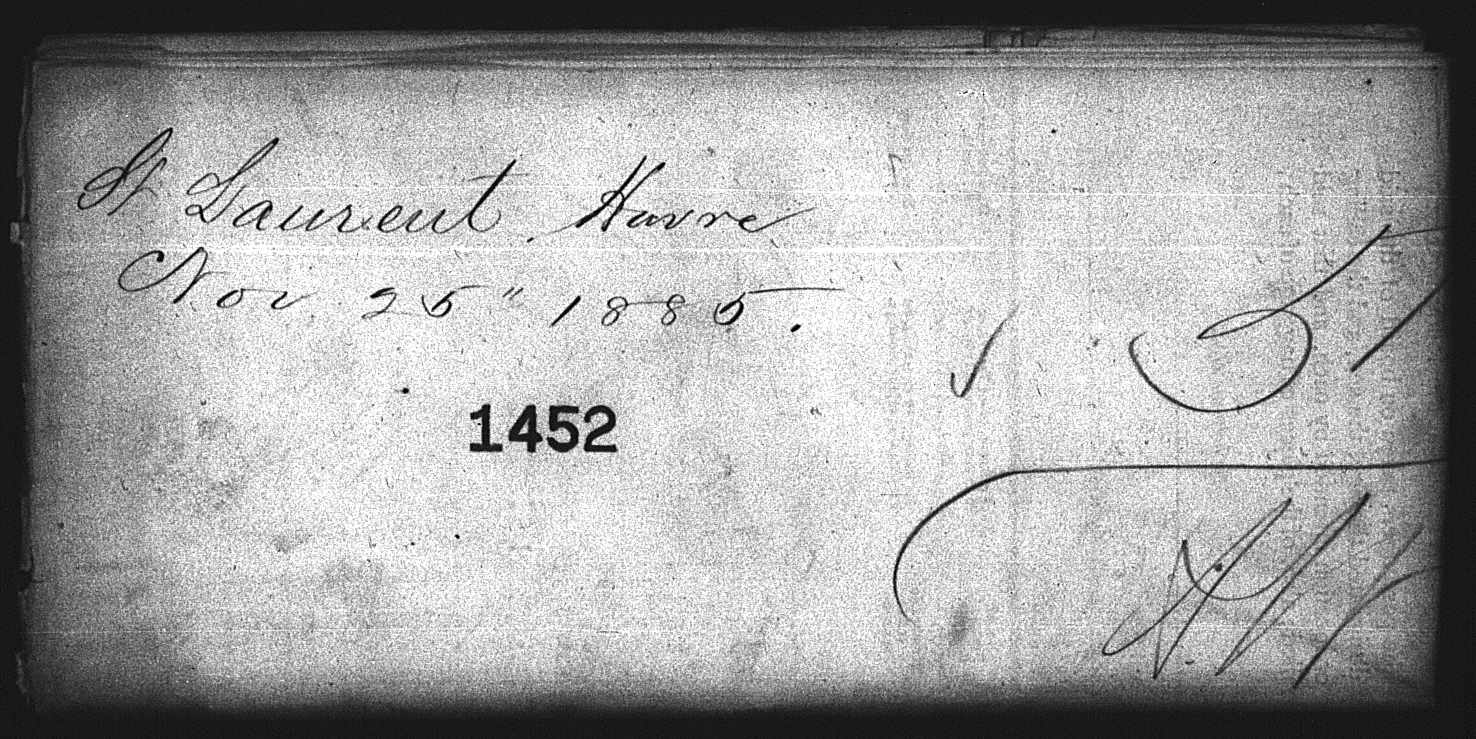 St Laurent. Havre
Nov 25" 1885.
51
1452